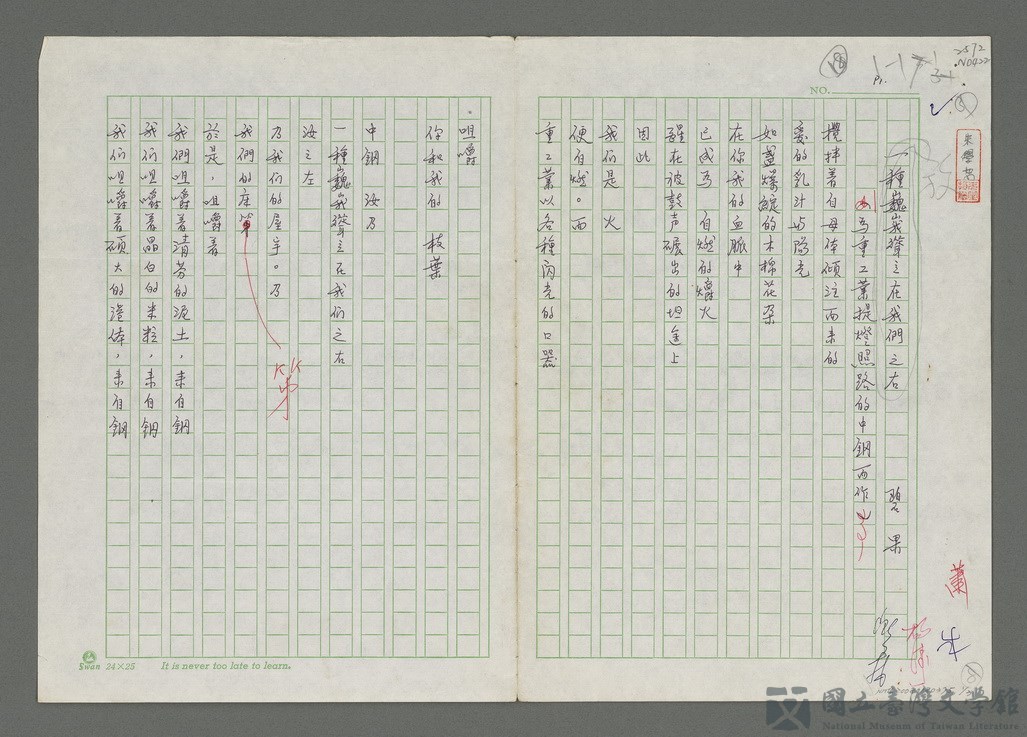 NO.
一種巍峩聳立在我們之右
碧果
為重工業提燈照路的中鋼而作
攪拌着自母体傾注而來的
愛的乳汁與陽光
如蓋燦綻的木棉花朵
在你我的血脈中
已成為 自燃的爝火
醒在被鼓声碾出的坦途上
因此
我们是 火
便自燃。而
重工業以各種閃光的口器
咀嚼。
你和我的 枝葉
中鋼 汝乃
一種巍峩聳立在我们之右
汝之左
乃我们的屋宇。乃
我們的床笫
笫
於是，咀嚼着
我們咀嚼着清芬的泥土，来自鋼
我们咀嚼着晶白的米粒，来自鋼
我们咀嚼着碩大的澄体，来自鋼
Swan 24×25 It is never too late to learn.
蕭
國立臺灣文學館
National Museum of Taiwan Literature